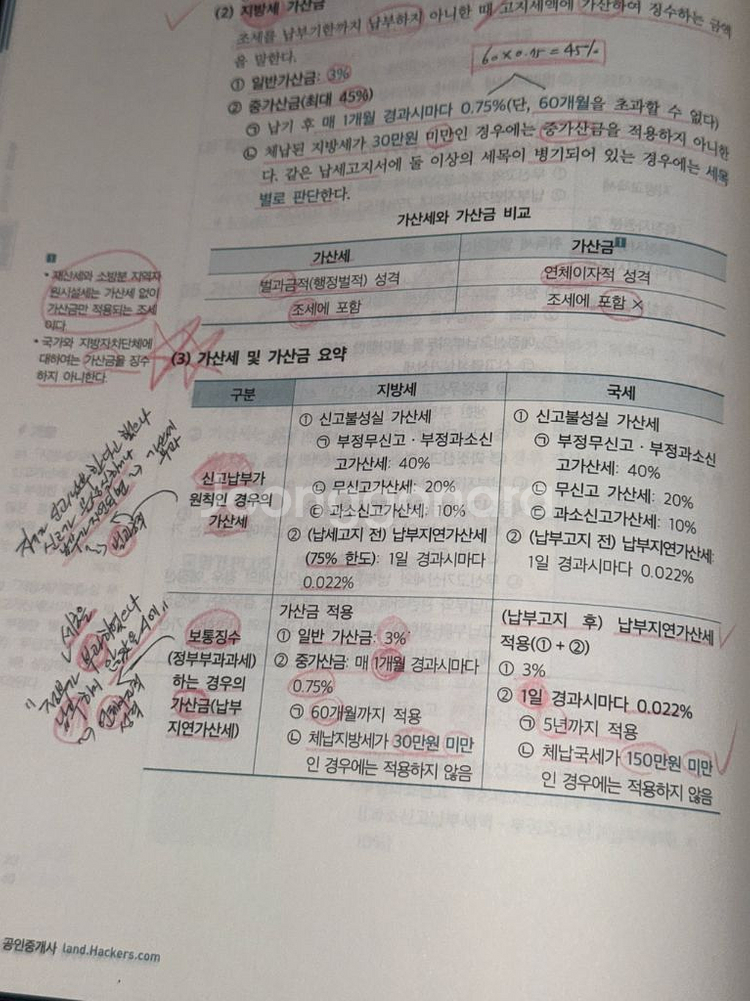 (2) 지방세 가산금
조세를 납부기한까지 납부하지 아니한 때 고지세액에 가산하여 징수하는 금액
을 말한다.
60×0.75=45%
① 일반가산금: 3%
② 중가산금(최대 45%)
㉠ 납기 후 매 1개월 경과시마다 0.75%(단, 60개월을 초과할 수 없다)
㉡ 체납된 지방세가 30만원 미만인 경우에는 중가산금을 적용하지 아니한
다. 같은 납세고지서에 둘 이상의 세목이 병기되어 있는 경우에는 세목
별로 판단한다.
가산세와 가산금 비교
가산세 가산금1
벌과금적(행정벌적) 성격 연체이자적 성격
조세에 포함 조세에 포함 ×
1
• 재산세와 소방분 지역자
원시설세는 가산세 없이
가산금만 적용되는 조세
이다.
• 국가와 지방자치단체에
대하여는 가산금을 징수
하지 아니한다.
(3) 가산세 및 가산금 요약
구분 지방세 국세
신고납부가
원칙인 경우의
가산세
① 신고불성실 가산세
㉠ 부정무신고 · 부정과소신
고가산세: 40%
㉡ 무신고가산세: 20%
㉢ 과소신고가산세: 10%
② (납세고지 전) 납부지연가산세
(75% 한도): 1일 경과시마다
0.022%
① 신고불성실 가산세
㉠ 부정무신고 · 부정과소신
고가산세: 40%
㉡ 무신고 가산세: 20%
㉢ 과소신고가산세: 10%
② (납부고지 전) 납부지연가산세:
1일 경과시마다 0.022%
보통징수
(정부부과과세)
하는 경우의
가산금(납부
지연가산세)
가산금 적용
① 일반 가산금: 3%
② 중가산금: 매 1개월 경과시마다
0.75%
㉠ 60개월까지 적용
㉡ 체납지방세가 30만원 미만
인 경우에는 적용하지 않음
(납부고지 후) 납부지연가산세
적용(① + ②)
① 3%
② 1일 경과시마다 0.022%
㉠ 5년까지 적용
㉡ 체납국세가 150만원 미만
인 경우에는 적용하지 않음
공인중개사 land.Hackers.com